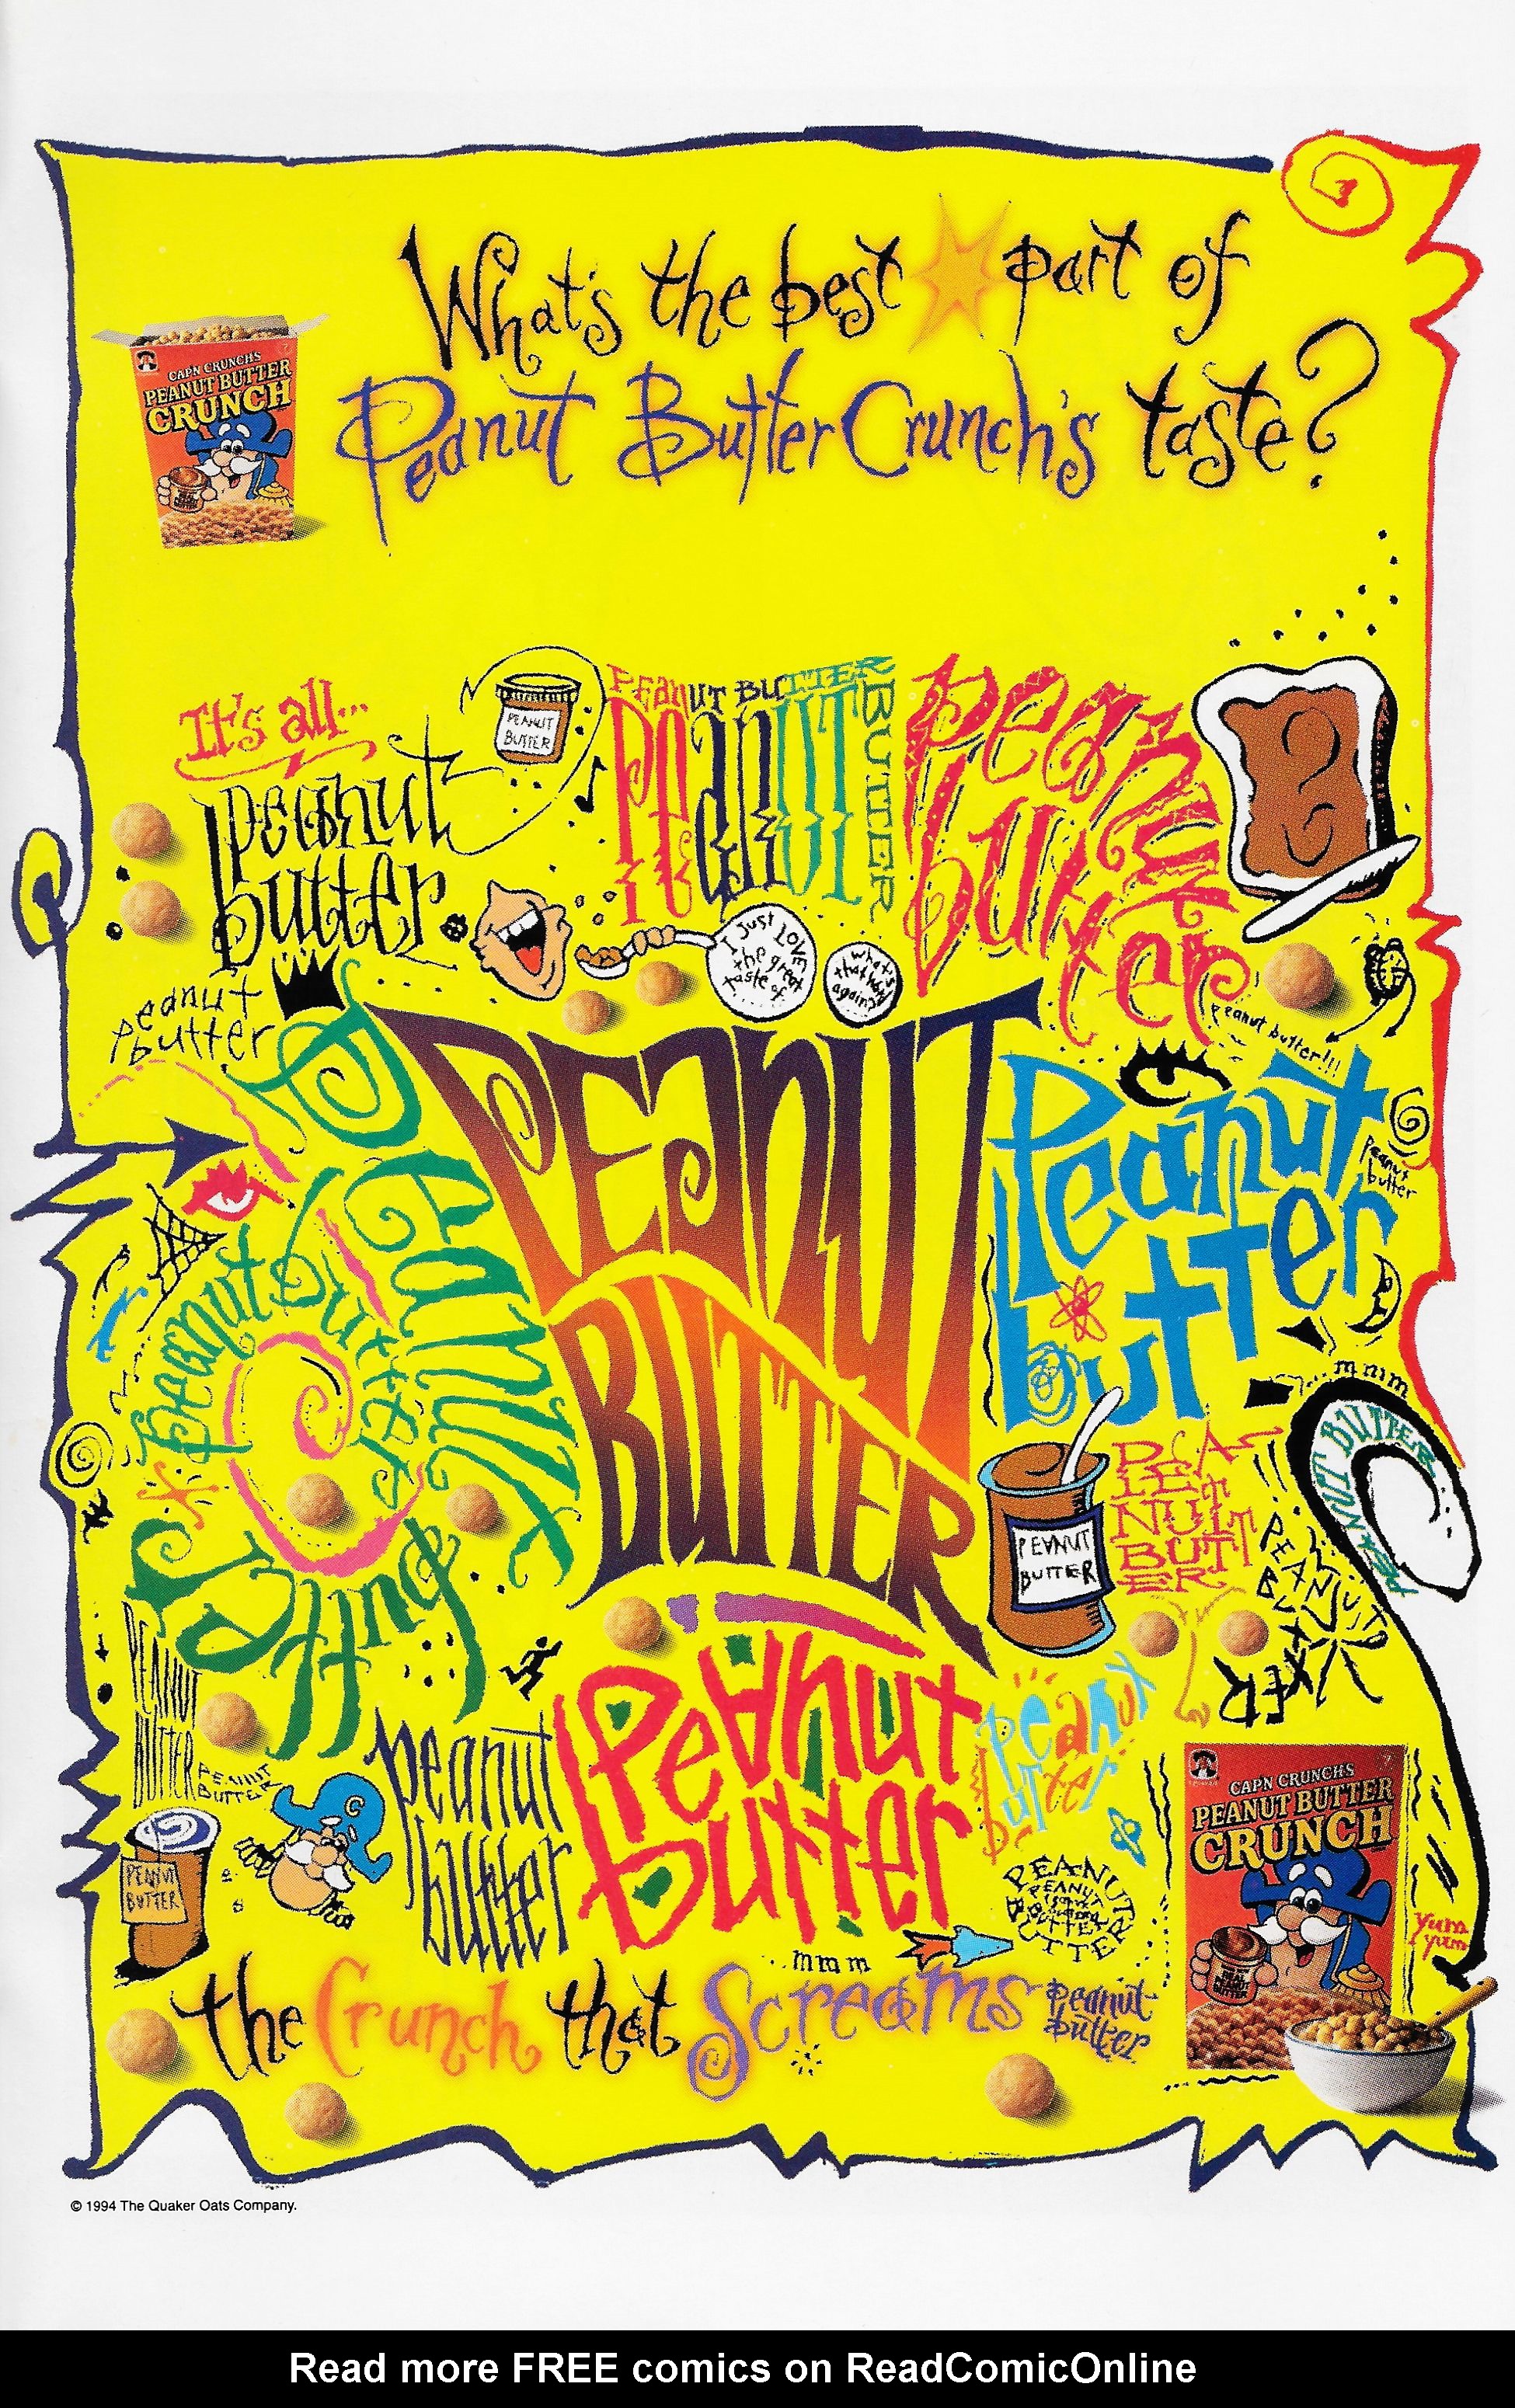 What's the best part of
Peanut Butter Crunch's taste?
CAP'N CRUNCH'S
PEANUT BUTTER
CRUNCH
It's all...
peanut
butter
PEANUT
BUTTER
PEANUT BUTTER
PEANUT
BUTTER
peanut
butter
I just LOVE
the great
taste of
what's
that word
again?
peanut
butter
peanut butter!!!
PEANUT
BUTTER
Peanut
butter
peanut
butter
Peanut
butter
peanut
butter
mmm
PEANUT BUTTER
PEANUT
BUTTER
PEANUT
BUTTER
PEANUT
BUTTER
PEANUT
BUTTER
PEANUT
BUTTER
C
peanut
butter
Peanut
butter
peanut
butter
PEANUT
BUTTER
PEANUT
BUTTER
PEANUT
BUTTER
CAP'N CRUNCH'S
PEANUT BUTTER
CRUNCH
REAL
PEANUT
BUTTER
yum
yum
mmm
the Crunch that Screams peanut
butter
© 1994 The Quaker Oats Company.
Read more FREE comics on ReadComicOnline